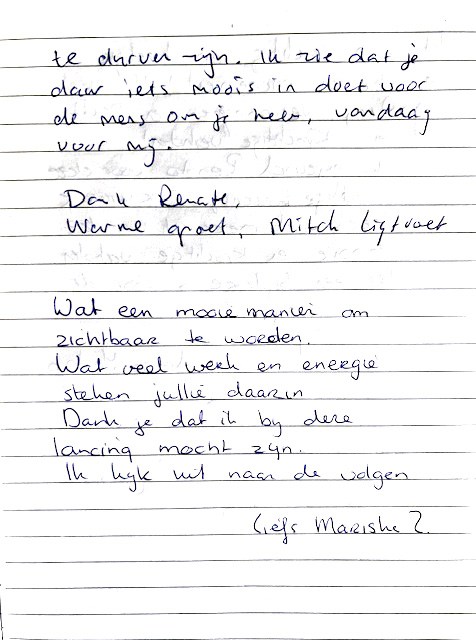 te durven zijn. Ik zie dat je
daar iets moois in doet voor
de mens om je heen, vandaag
voor mij.
Dank Renate,
Warme groet, Mitch Ligtvoet
Wat een mooie manier om
zichtbaar te worden.
Wat veel werk en energie
steken jullie daarin
Dank je dat ik by deze
lancing mocht zyn.
Ik kyk uit naar de volgen
liefs Mariska Z.